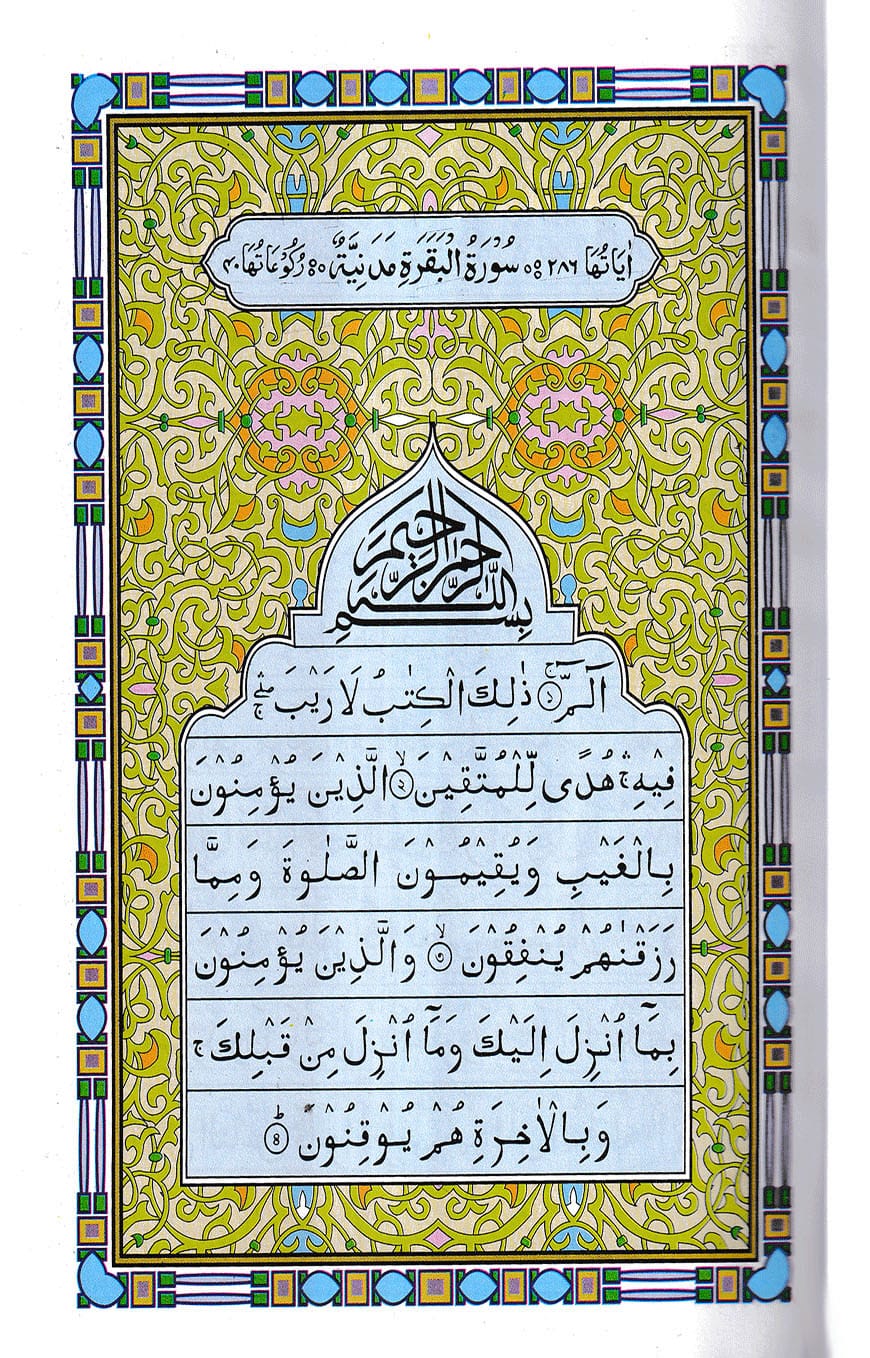 اٰيَاتُهَا ٢٨٦ سُوْرَةُ الْبَقَرَةِ مَدَنِيَّةٌ رُكُوْعَاتُهَا ٤٠
بِسْمِ اللّٰهِ الرَّحْمٰنِ الرَّحِيْمِ
الٓمّٓ ۚ ۝١ ذٰلِكَ الْكِتٰبُ لَا رَيْبَ ۛۖۚ
فِيْهِ ۛۚ هُدًى لِّلْمُتَّقِيْنَ ۙ ۝٢ الَّذِيْنَ يُؤْمِنُوْنَ
بِالْغَيْبِ وَيُقِيْمُوْنَ الصَّلٰوةَ وَمِمَّا
رَزَقْنٰهُمْ يُنْفِقُوْنَ ۙ ۝٣ وَالَّذِيْنَ يُؤْمِنُوْنَ
بِمَآ اُنْزِلَ اِلَيْكَ وَمَآ اُنْزِلَ مِنْ قَبْلِكَ ۚ
وَبِالْاٰخِرَةِ هُمْ يُوْقِنُوْنَ ؕ ۝٤